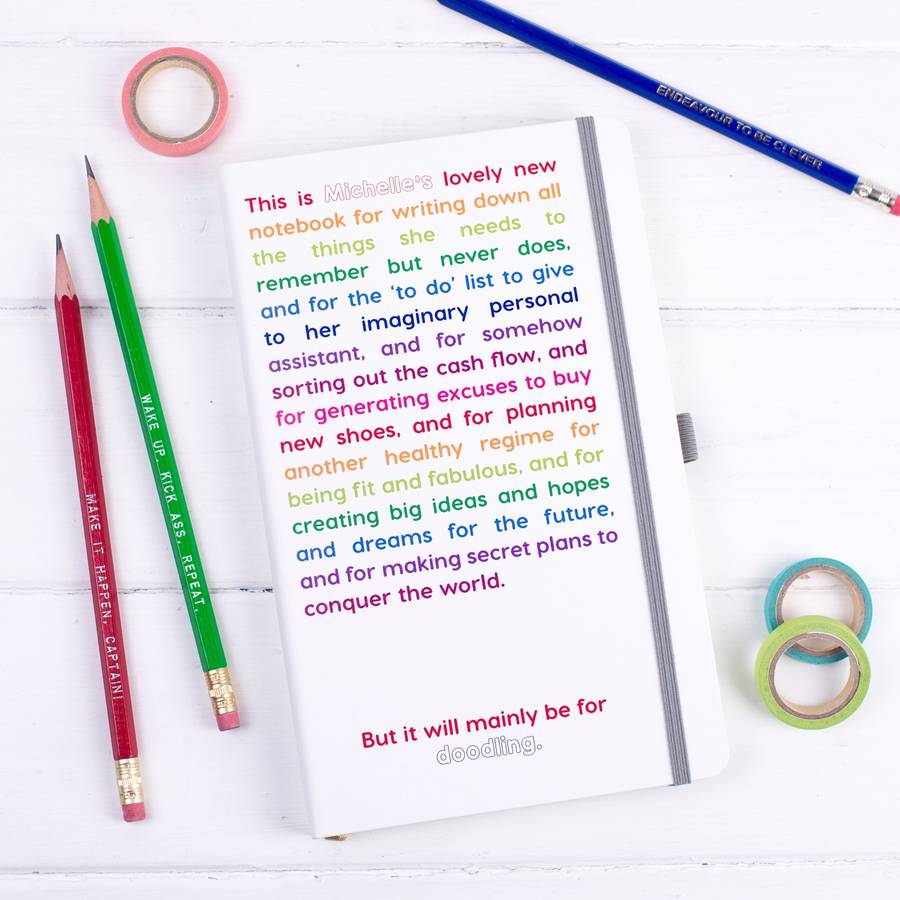 This is Michelle's lovely new
notebook for writing down all
the things she needs to
remember but never does,
and for the ‘to do’ list to give
to her imaginary personal
assistant, and for somehow
sorting out the cash flow, and
for generating excuses to buy
new shoes, and for planning
another healthy regime for
being fit and fabulous, and for
creating big ideas and hopes
and dreams for the future,
and for making secret plans to
conquer the world.
But it will mainly be for
doodling.
ENDEAVOUR TO BE CLEVER
WAKE UP. KICK ASS. REPEAT.
MAKE IT HAPPEN, CAPTAIN!